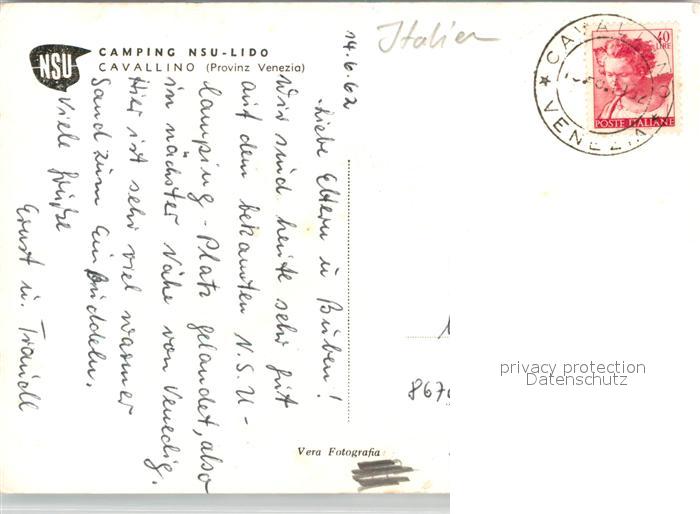 NSU
CAMPING NSU-LIDO
CAVALLINO (Provinz Venezia)
14.6.62
Italien
40
LIRE
POSTE ITALIANE
CAVALLINO
VENEZIA
Liebe Eltern u Buben!
Wir sind heute sehr gut
auf dem bekannten N.S.U-
Camping-Platz gelandet, also
in nächster Nähe von Venedig.
Hier ist sehr viel warmer
Sand zum Einbuddeln.
Viele Grüße
Ernst u. Traudl
867
Vera Fotografia
privacy protection
Datenschutz